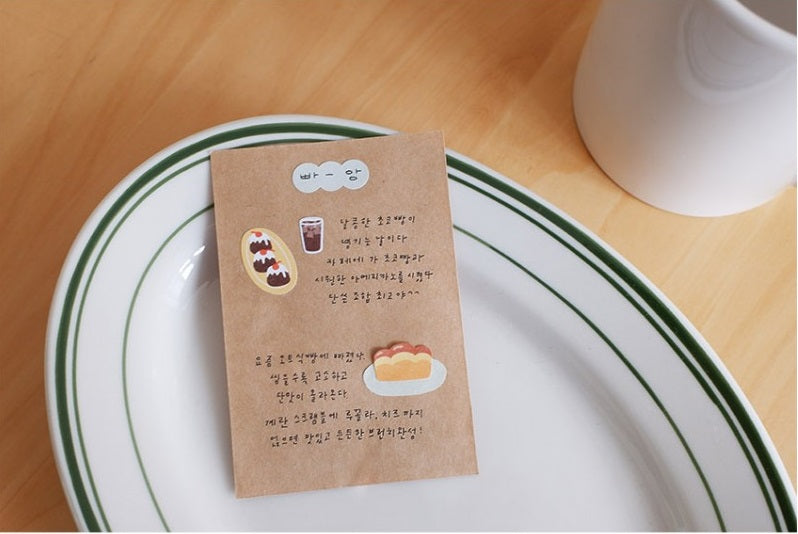 빠 - 앙
달콤한 초코빵이
땡기는 날이다
카페에 가 초코빵과
시원한 아메리카노를 시켰다
단쓸 조합 최고야^^
요즘 오트식빵에 빠졌다
씹을수록 고소하고
단맛이 올라온다
계란 스크램블에 루꼴라, 치즈까지
얹으면 맛있고 든든한 브런치 완성!